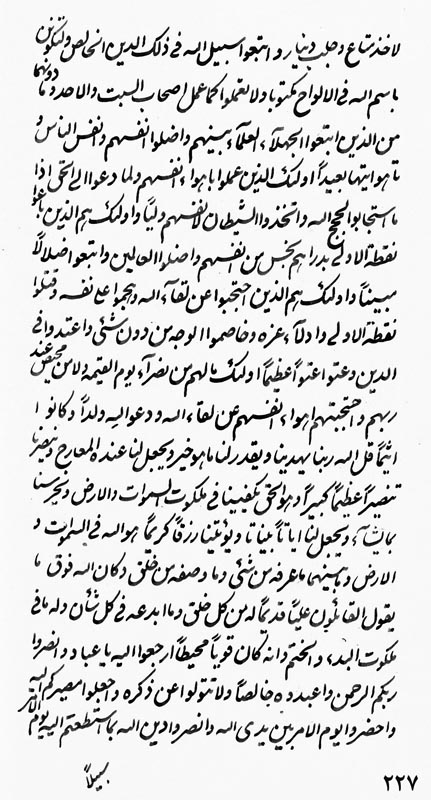 لاخذ متاع وجلب دنیا ر و اتبعوا سبیل الله فی ذلک الدین الخالص ولتکونن
باسم الله فی الالواح مکتوبا ولا تعملوا کما عمل اصحاب السبت والاحد و ما دونهما
من الذین اتبعوا الجهلآء العلمآء بینهم واضلوا انفسهم وانفس الناس و
تاهوا تیها بعیداً اولئک الذین عملوا باهوآء انفسهم ولما دعوا الی الحق اذا
ما استجابوا لحجج الله واتخذوا الشیطان لانفسهم ولیاً واولئک هم الذین باعوا
نقطة الاولی بدراهم بخس من انفسهم واضلوا العالمین واتبعوا ضلالاً
مبیناً واولئک هم الذین احتجبوا عن لقآء الله وهجموا علی نفسه وقتلوا
نقطة الاولی وادلآء عزه وخاصموا الوجه من دون شئ واعتدوا فی
الدین وعتوا عتواً عظیماً اولئک مالهم من نصرآء یوم القیمة ولا من محیص عند
ربهم واحتجبتهم اهوآء انفسهم عن لقاء الله ودعوا الیه ولداً وکانوا
اثیماً قل الله ربنا یهدینا ویقدر لنا ما هو خیر ویجعل لنا عنده المعارج وینصرنا
تنصیراً عظیماً کبیراً وهو الحق یکفینا فی ملکوت السموات والارض ویحرسنا
بما یشآء ویجعل لنا ایاتاً بینا تا ویؤتینا رزقاً کریماً هو الله فی السموات و
الارض وما بینهما ما عرفه من شئ وما وصفه من خلق وکان الله فوق ما
یقول القائلون علیاً قدیماً له من کل خلق وما ابدعه فی کل شأن وله ما فی
ملکوت البدء والختم وانه کان قویاً محیطاً ارجعوا الیه یا عباد وانصروا
ربکم الرحمن واعبدوه خالصاً ولا تتولوا عن ذکره واجعلوا مصیرکم الیه
واحضروا یوم الامر بین یدی الله وانصروا دین الله بما استطعتم الیه یوم الامر
سبیلاً
٢٢٧